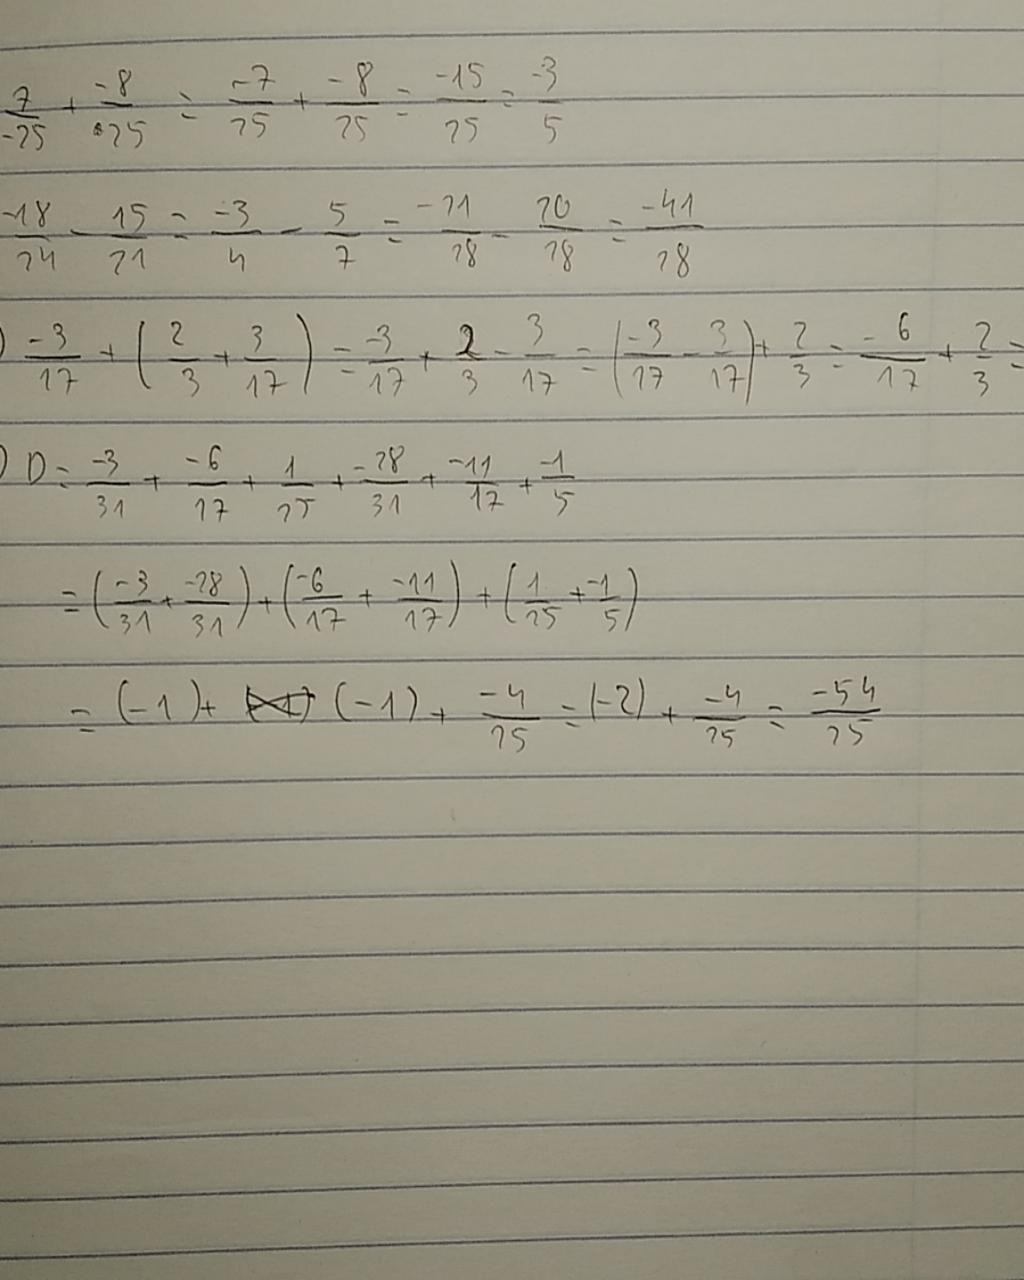 7/-25 + -8/25 = -7/25 + -8/25 = -15/25 = -3/5
-18/24 - 15/21 = -3/4 - 5/7 = -21/28 - 20/28 = -41/28
) -3/17 + (2/3 + 3/17) = -3/17 + 2/3 - 3/17 = (-3/17 - 3/17) + 2/3 = -6/17 + 2/3 =
) D = -3/31 + -6/17 + 1/25 + -28/31 + -11/17 + -1/5
= (-3/31 + -28/31) + (-6/17 + -11/17) + (1/25 + -1/5)
= (-1) + (-1) + -4/25 = (-2) + -4/25 = -54/25